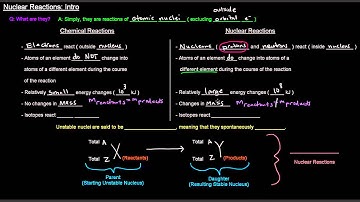 Nuclear Reactions: Intro
Q: What are they? A: Simply, they are reactions of atomic nuclei (excluding orbital e⁻)
outside
Chemical Reactions
- Electrons react (outside nucleus)
- Atoms of an element do NOT change into
atoms of a different element during the course
of the reaction
- Relatively small energy changes (10³ kJ)
- No changes in mass m reactants = m products
- Isotopes react
Nuclear Reactions
- Nucleons (protons and neutrons) react (inside nucleus)
- Atoms of an element do change into atoms of a
different element during the course of the reaction
- Relatively large energy changes (10⁸ kJ)
- Changes in mass m reactants ≠ m products
- Isotopes react
Unstable nuclei are said to be , meaning that they spontaneously
Total A
X
Total Z
(Reactants)
Parent
(Starting Unstable Nucleus)
Total A
Y
Total Z
(Products)
Daughter
(Resulting Stable Nucleus)
Nuclear Reactions